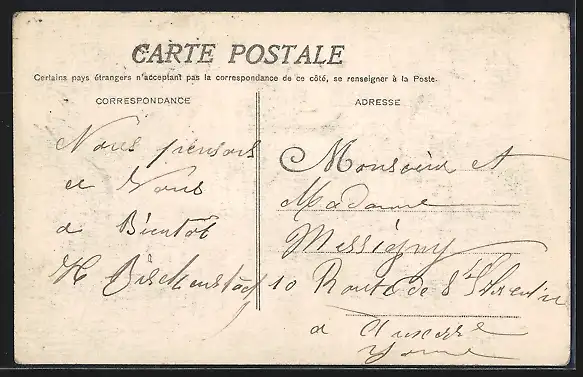 CARTE POSTALE
Certains pays étrangers n'acceptant pas la correspondance de ce côté, se renseigner à la Poste.
CORRESPONDANCE
Nous pensons
a Vous
a Bientot
H
ADRESSE
Monsieur et
Madame
Messigny
10 Route de St Florentin
a Auxerre
Yonne